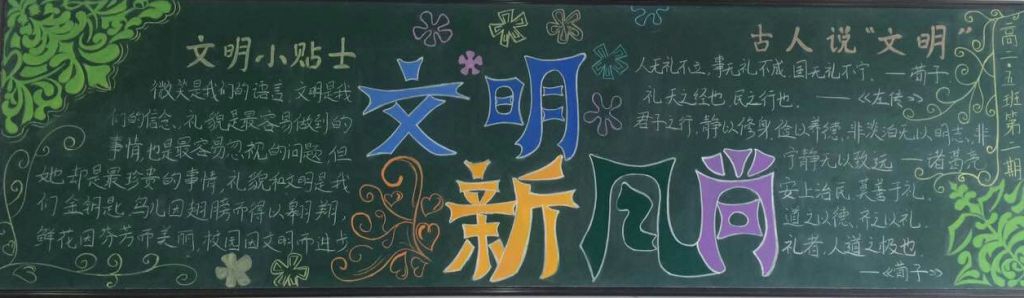 文明小贴士
微笑是我们的语言,文明是我
们的信念。礼貌是最容易做到的
事情,也是最容易忽视的问题,但
她却是最珍贵的事情,礼貌和文明是我
们金钥匙,鸟儿因翅膀而得以翱翔,
鲜花因芬芳而美丽,校园因文明而进步
文明
新风尚
古人说“文明”
人无礼不立,事无礼不成,国无礼不宁。—荀子
礼,天之经也,民之行也。—《左传》
君子之行,静以修身,俭以养德,非淡泊无以明志,非
宁静无以致远。—诸葛亮
安上治民,莫善于礼。
道之以德,齐之以礼。
礼者,人道之极也。
—《荀子》
高二·五班第二期